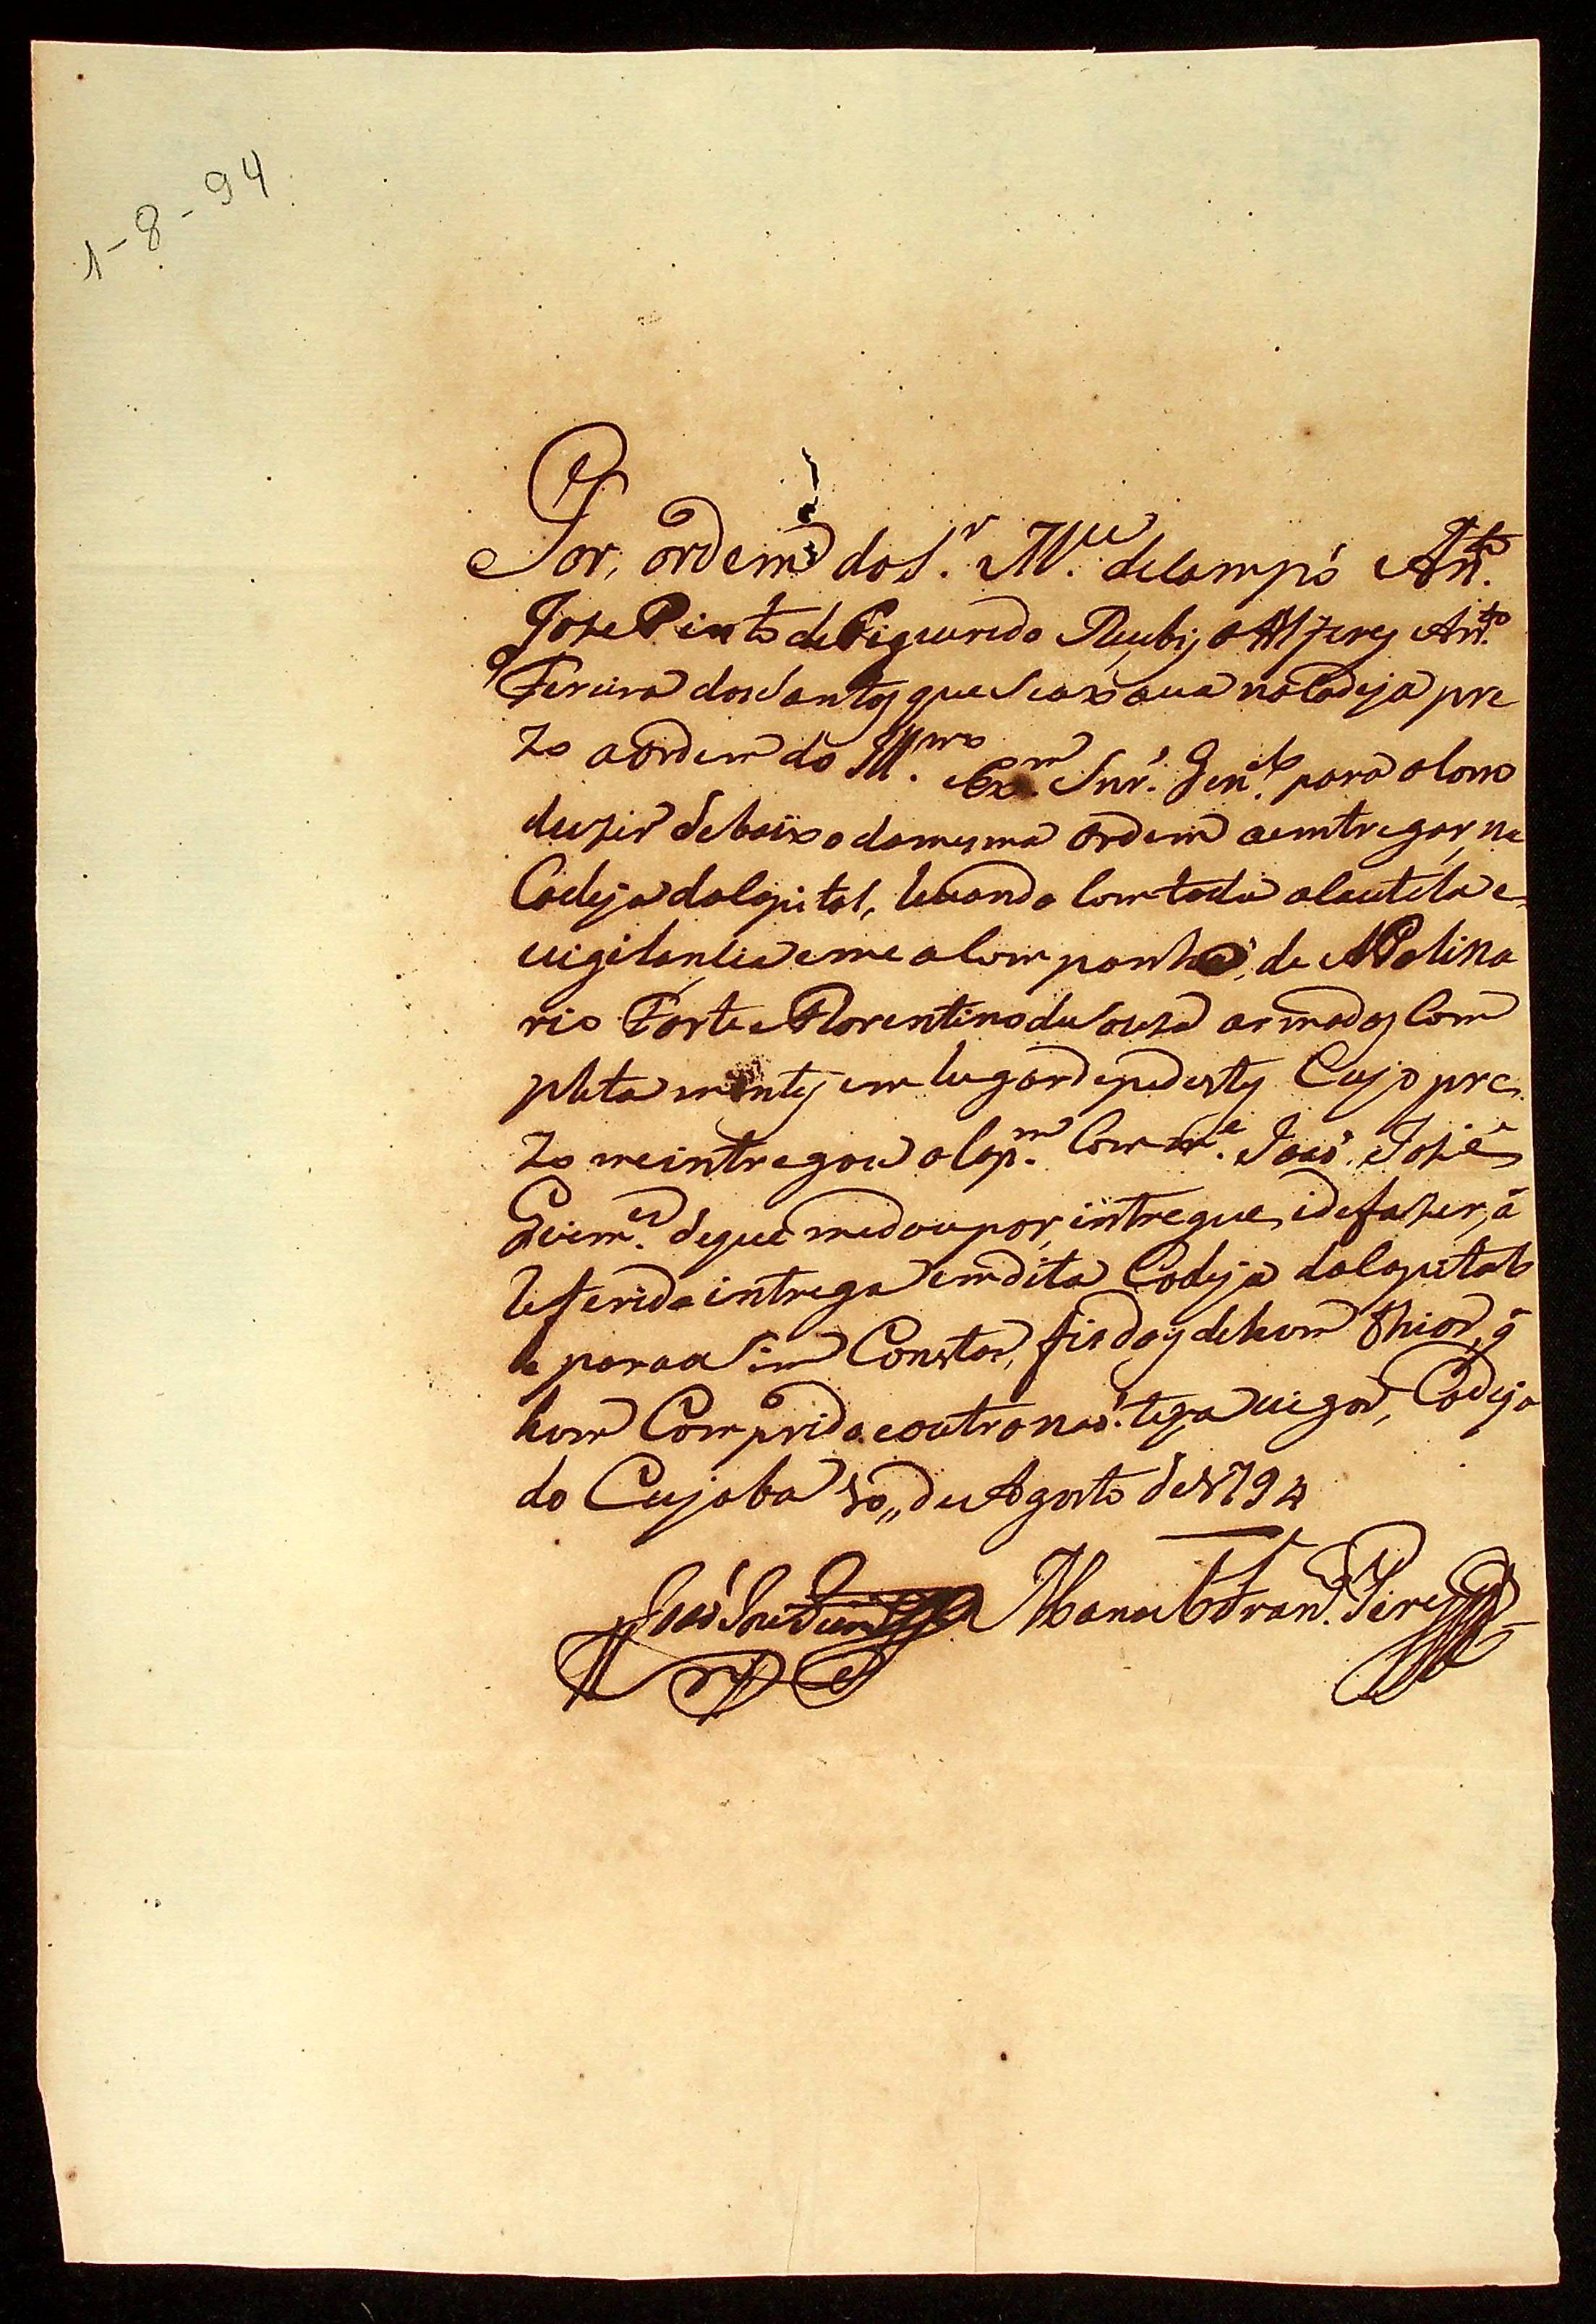 1-8-94
Por, ordem do S.r M.e de Campo Ant.to
Joze Pinto de Figueiredo Reuby o Alferes Ant.to
Fereira dos Santos que Seaxaua na Cadeja pre
zo a ordem do Ill.mo e Ex.m Snr. Gen.al para o Con
duzir debaixo da mesma ordem aemtregar, na
Cadeja da Capital, leuando Com toda a Cautela e
uigilancia eme a Companhão, de APolina
rio Forte e Florentino de Souza armados Com
pleta mentes em lugar de pedestes Cujo pre
zo me intregou o Cap.m Com.e João Jozé
Guim.es de que me dou por, intregue, ide fazer, á
Referida intrega em dita Cadeja da Capital
e para asim Constar, fis dois de hum Thior, q̃
hum Comprido e outro não teja uigor, Cadeja
do Cujaba 10,, de Agosto de 1794
João Joze Guim.es Manoel Fran.co Pires